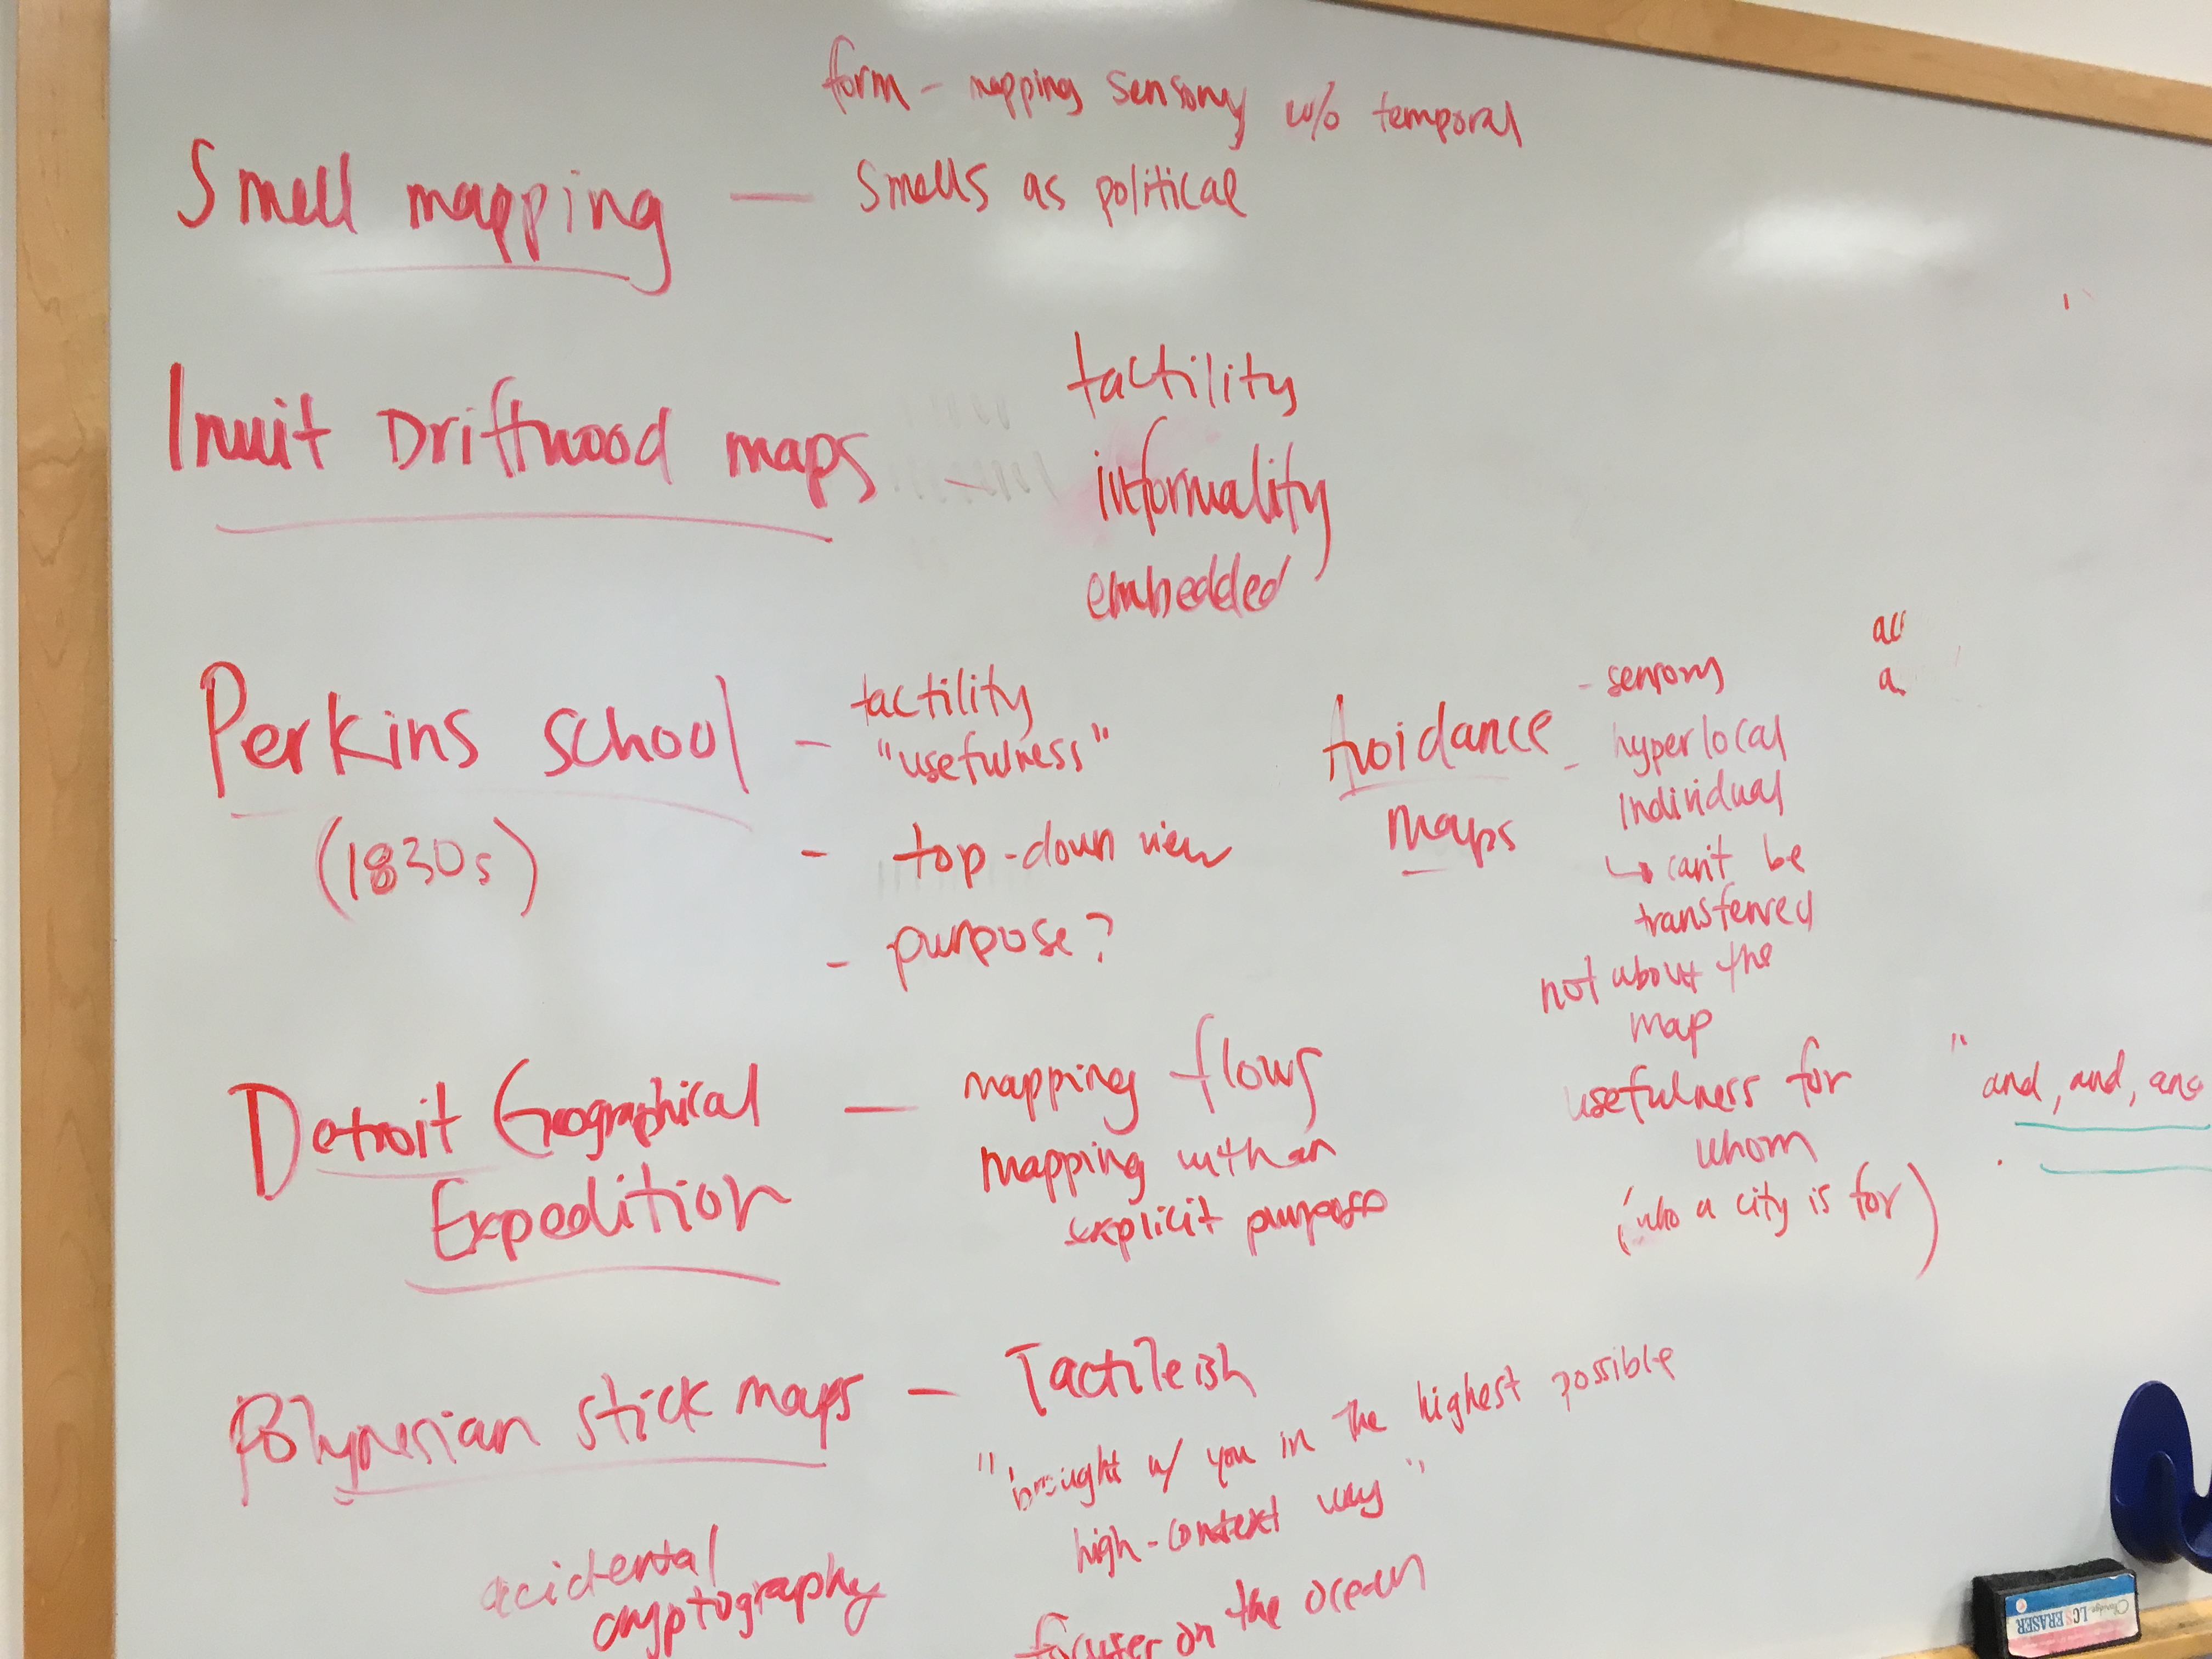 form - mapping sensory w/o temporal
Smell mapping — smells as political
Inuit Driftwood maps -
tactility
informality
embedded
Perkins school
(1830s)
- tactility
"usefulness"
- top-down view
- purpose?
Avoidance
maps
- sensory
- hyperlocal
individual
↳ can't be
transferred
not about the
map
usefulness for
whom
(who a city is for)
" and, and, and
Detroit Geographical
Expedition
— mapping flows
mapping with an
explicit purpose
Polynesian stick maps — Tactileish
"brought w/ you in the highest possible
high-context way"
acidental
cryptography
on the ocean
LC ERASER